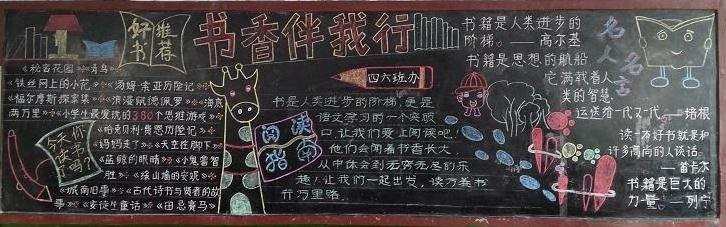 好书
推荐
书香伴我行
四六班办
《秘密花园》《青鸟》
《铁丝网上的小花》《汤姆·索亚历险记》
《福尔摩斯探案集》《浪漫鼠德佩罗》《海底
两万里》《小学生最爱玩的380个思维游戏》
《哈克贝利·费恩历险记》
《妈妈走了》《天空在脚下》
《蓝鲸的眼睛》《小鬼鲁智
胜》《狼山塘的空观》
《城南旧事》《古代诗书与贤者的故
事》《安徒生童话》《田忌赛马》
今天你
读书了
吗?
阅读
指南
书是人类进步的阶梯,更是
语文学习的一个突破
口,让我们爱上阅读吧!
他们会闻着书香长大
从中体会到无穷无尽的乐
趣!让我们一起出发,读万卷书
行万里路。
书籍是人类进步的
阶梯。——高尔基
书籍是思想的航船
它满载着人
类的智慧
运送给一代又一代。——培根
读一本好书就是和
许多高尚的人谈话。
——笛卡尔
书籍是巨大的
力量。——列宁
名人名言